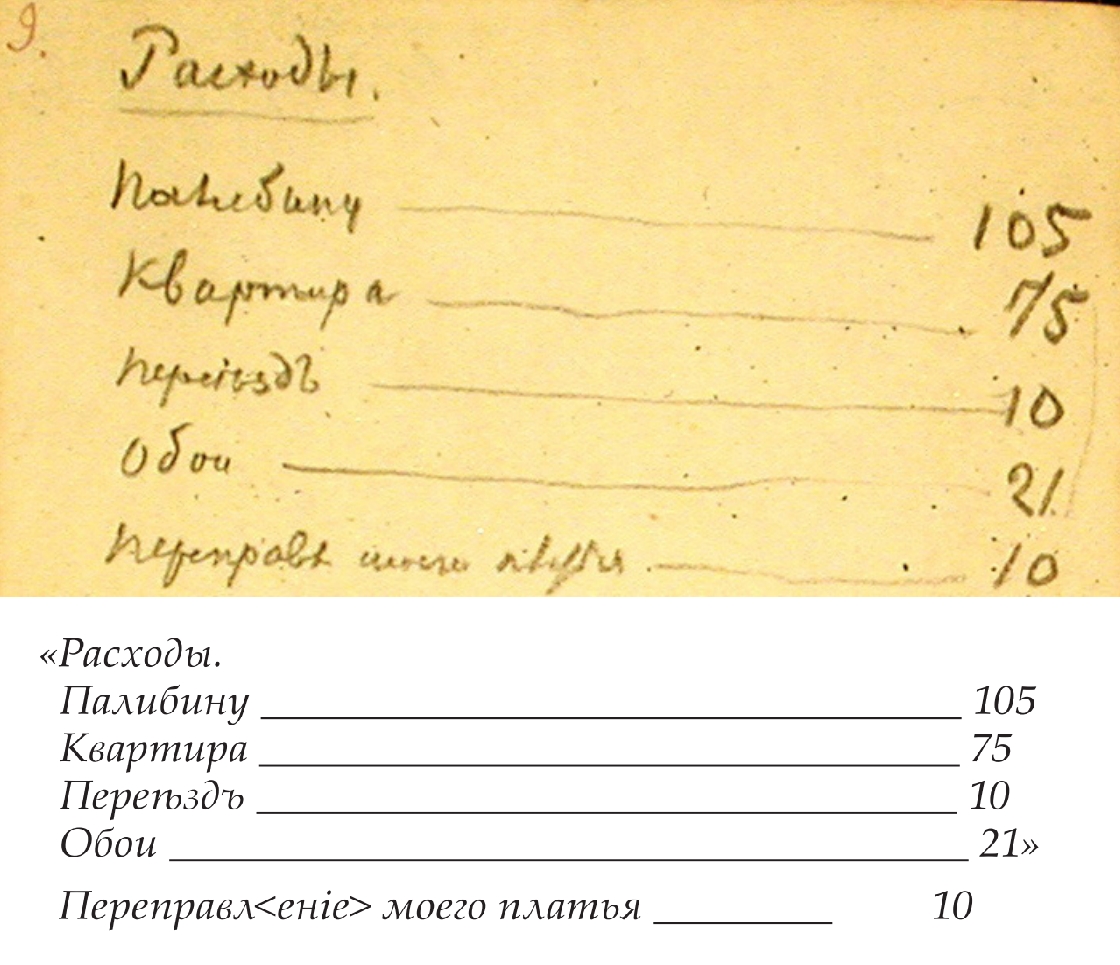 9.
Расходы.
Палибину 105
Квартира 75
Переѣздъ 10
Обои 21
Переправл моего платья 10
«Расходы.
Палибину ____ 105
Квартира ____ 75
Переѣздъ ____ 10
Обои ____ 21»
Переправл<еніе> моего платья ____ 10